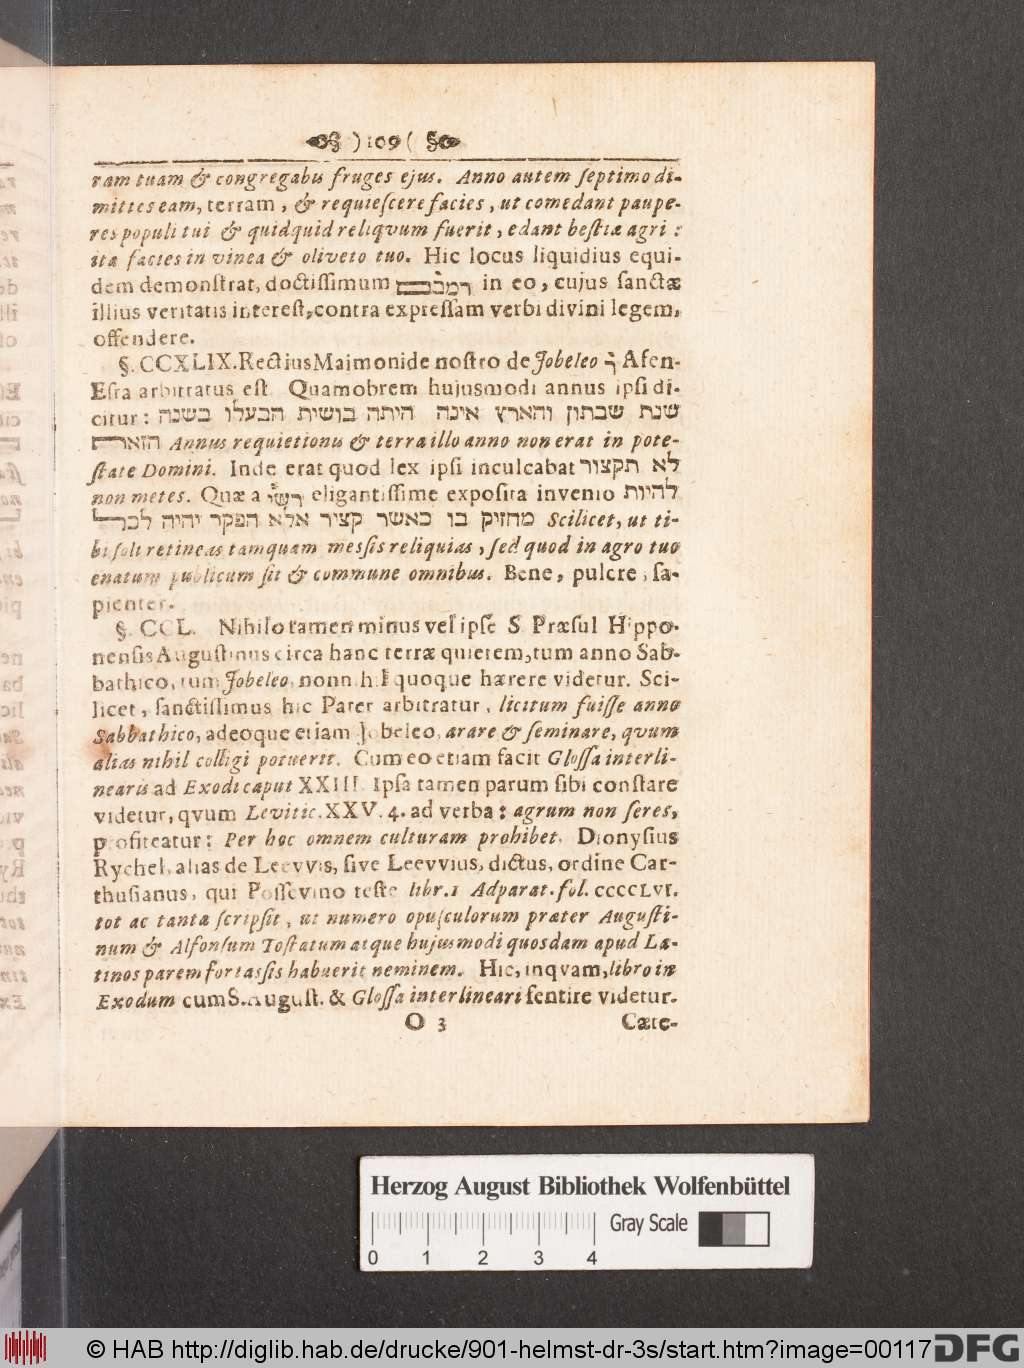 )109(
ram tuam & congregabis fruges ejus. Anno autem septimo di-
mittes eam, terram, & requiescere facies, ut comedant paupe-
res populi tui & quidquid reliqvum fuerit, edant bestiæ agri:
ita facies in vinea & oliveto tuo. Hic locus liquidius equi-
dem demonstrat, doctissimum רמבם in eo, cujus sanctæ
illius veritatis interest, contra expressam verbi divini legem,
offendere.
§. CCXLIX. Rectius Maimonide nostro de Jobeleo Afen-
Esra arbitratus est. Quamobrem hujusmodi annus ipsi di-
citur: שנת שבתון והארץ אינה היתה בושית הבעלו בשנה
הזאת Annus requietionis & terra illo anno non erat in pote-
state Domini. Inde erat quod lex ipsi inculcabat לא תקצור
non metes. Quæ a רשי eligantissime exposita invenio להיות
מחזיק בו כאשר קציר אלא הפקר יהיה לכל Scilicet, ut ti-
bi soli retineas tamquam messis reliquias, sed quod in agro tuo
enatum publicum sit & commune omnibus. Bene, pulcre, sa-
pienter.
§. CCL. Nihilo tamen minus vel ipse S. Præsul Hippo-
nensis Augustinus circa hanc terræ quietem, tum anno Sab-
bathico, tum Jobeleo, nonnihil quoque hærere videtur. Sci-
licet, sanctissimus hic Pater arbitratur, licitum fuisse anno
Sabbathico, adeoque etiam Jobeleo, arare & seminare, qvum
alias nihil colligi potuerit. Cum eo etiam facit Glossa interli-
nearis ad Exodi caput XXIII. Ipsa tamen parum sibi constare
videtur, qvum Levitic. XXV. 4. ad verba: agrum non seres,
profiteatur: Per hoc omnem culturam prohibet. Dionysius
Rychel, alias de Leevvis, sive Leevvius, dictus, ordine Car-
thusianus, qui Possevino teste libr. 1 Adparat. fol. CCCCLVI.
tot ac tanta scripsit, ut numero opusculorum præter Augusti-
num & Alfonsum Tostatum atque hujusmodi quosdam apud La-
tinos parem fortassis habuerit neminem. Hic, inqvam, libro in
Exodum cum S. August. & Glossa interlineari sentire videtur.
O 3 Cæte-
Herzog August Bibliothek Wolfenbüttel
Gray Scale
0 1 2 3 4
© HAB http://diglib.hab.de/drucke/901-helmst-dr-3s/start.htm?image=00117 DFG